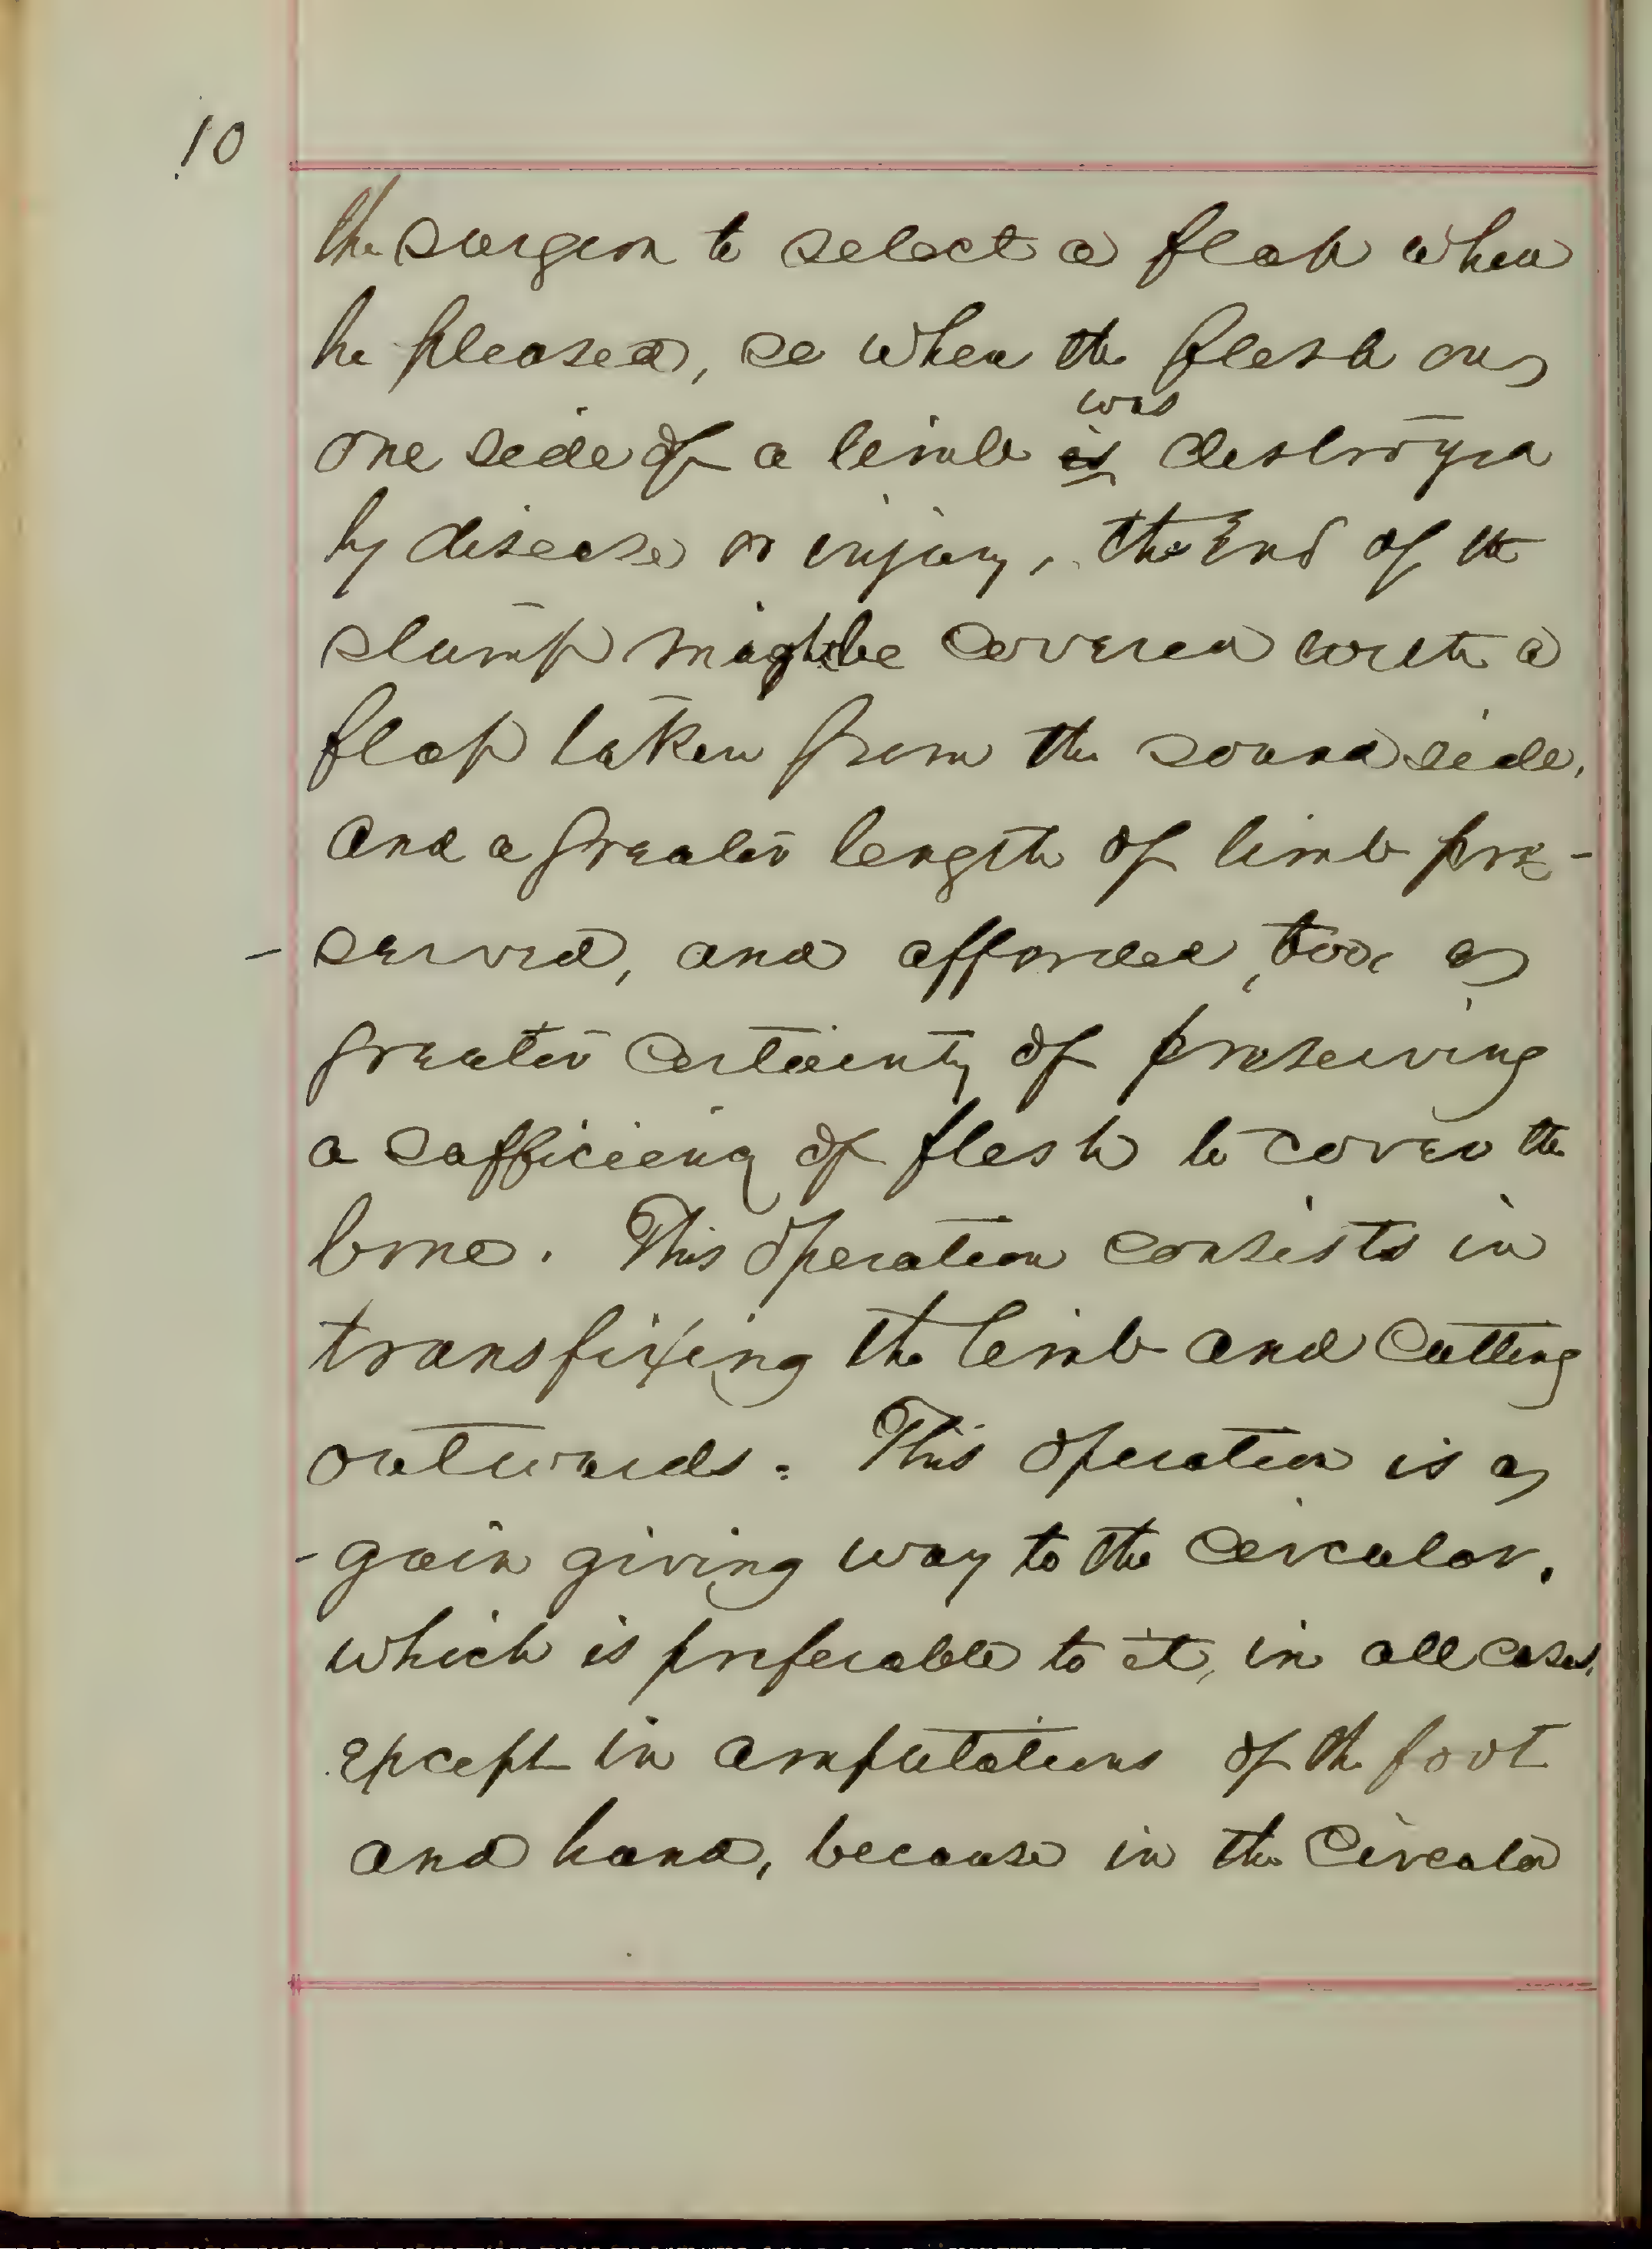 10
the surgeon to select a flap when
he pleased, so when the flesh on
was
one side of a limb is destroyed
by disease or injury, the end of the
stump might be covered with a
flap taken from the sound side,
and a greater length of limb pre-
-served, and afforded, too, a
greater certainty of preserving
a sufficiency of flesh to cover the
bone. This operation consists in
transfixing the limb and cutting
outwards. This operation is a
-gain giving way to the circular,
which is preferable to it, in all cases,
except in amputations of the foot
and hand, because in the circular